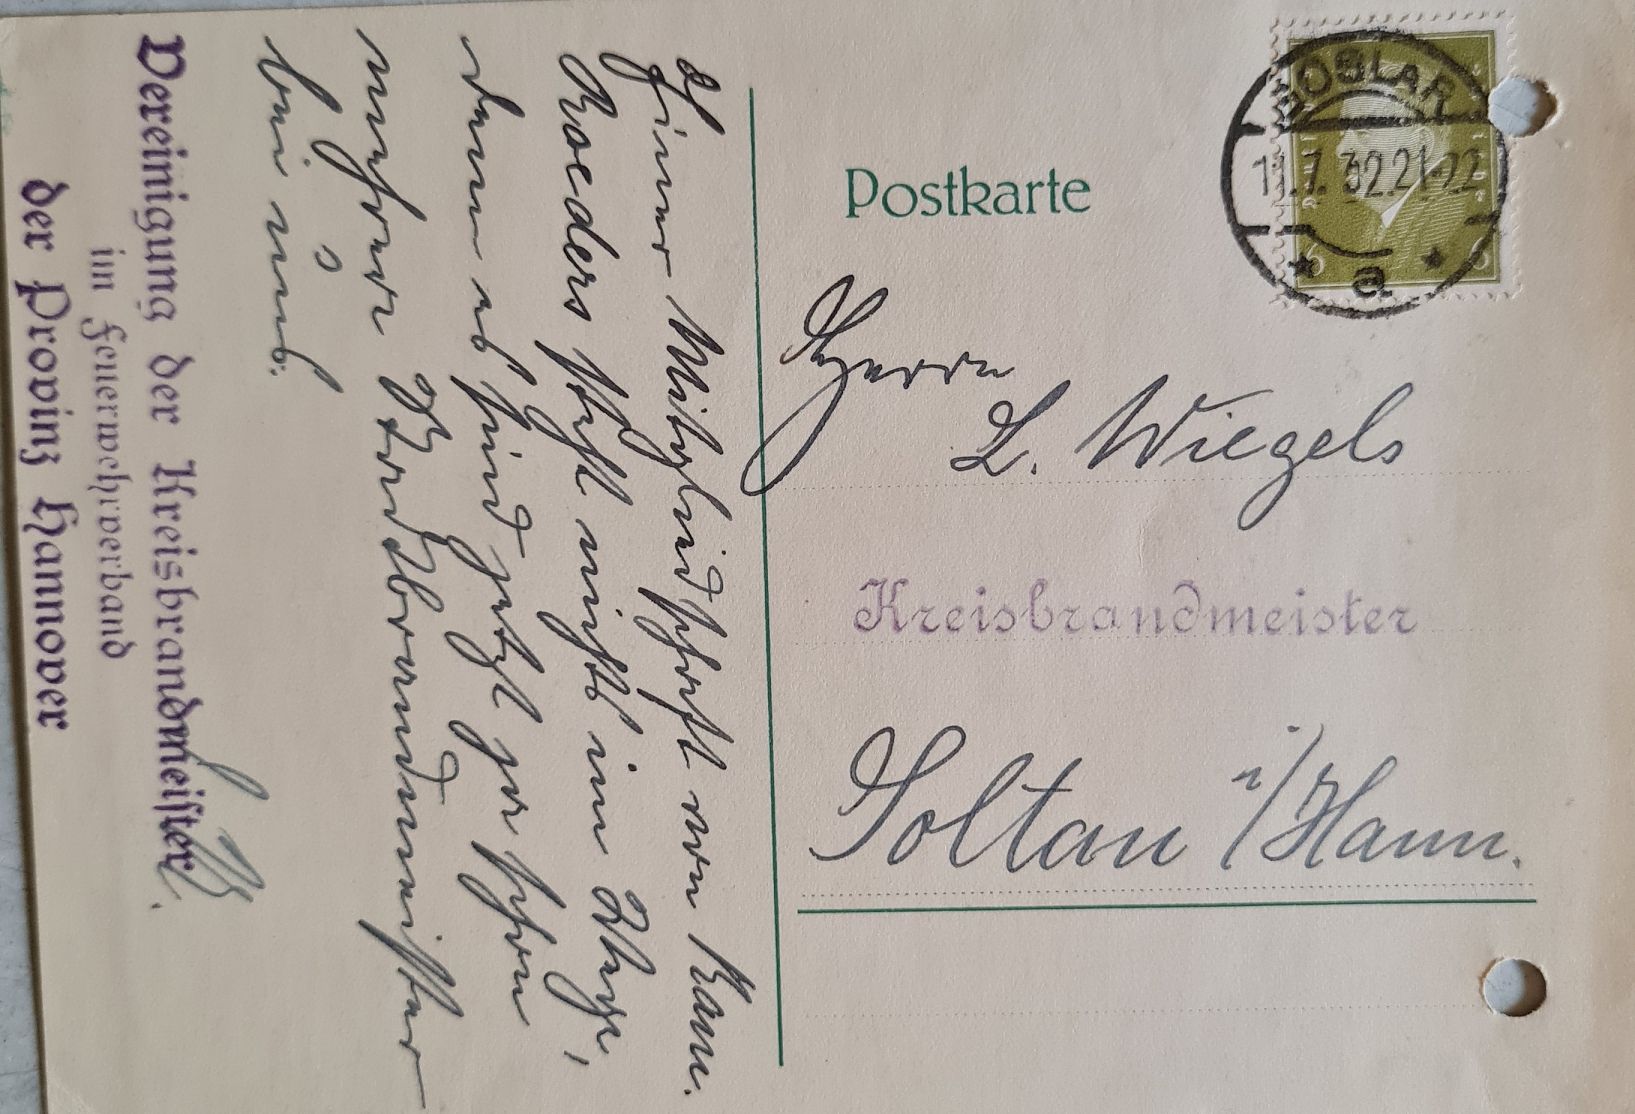 GOSLAR
11.7.32.21-22
* a *
Postkarte
Herrn
L. Wiegels
Kreisbrandmeister
Soltau i/Hann.
Einer Mitgliedschaft von Kam.
Roeders steht nichts im Wege,
denn es sind jetzt ja schon
mehrere Stadtbrandmeister
bei uns.
Vereinigung der Kreisbrandmeister
im Feuerwehrverband
der Provinz Hannover